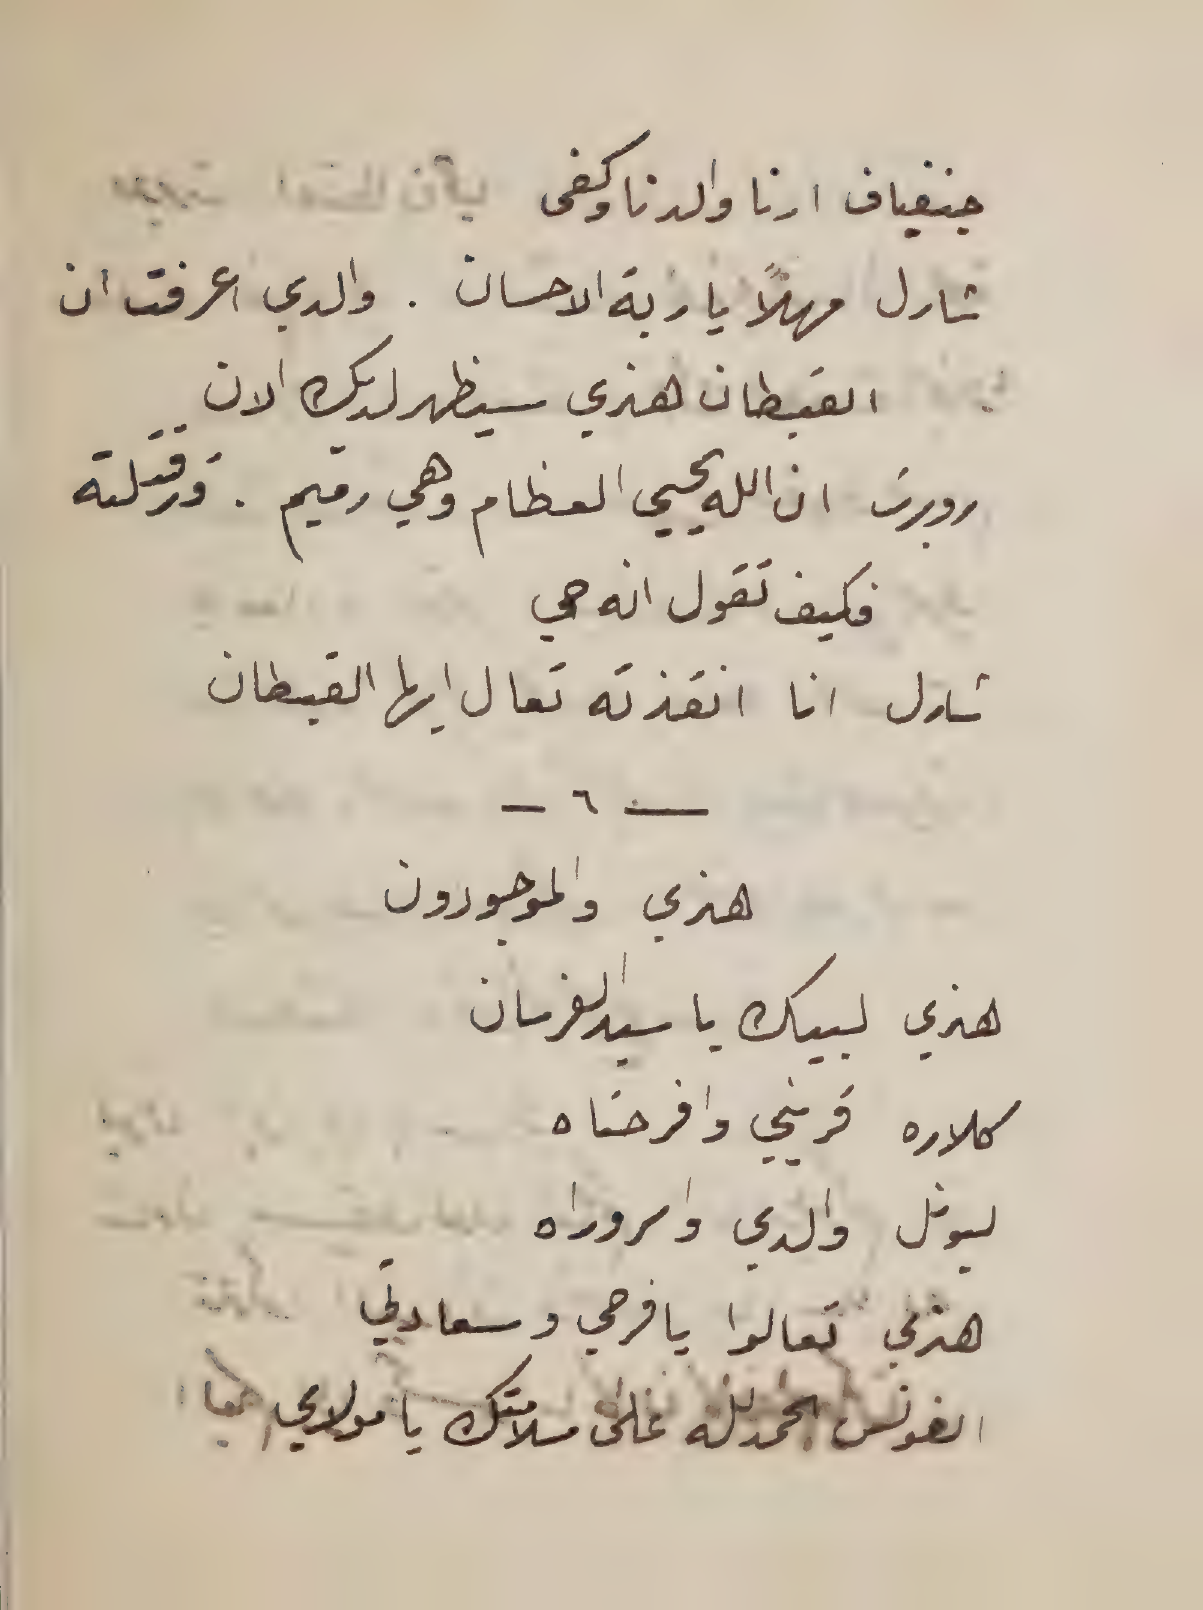 جنفياف ارنا والدنا وكفى
شارل مهلاً يا ربة الاحسان . والدي اعرفت ان
القبطان هنري سيظهر لديك الان
روبرت ان الله يحيي العظام وهي رقيم . وقد قتلته
فكيف تقول انه حي
شارل انا انقذته تعال ايها القبطان
— ٦ —
هنري والموجودون
هنري لبيك يا سيد الفرسان
كلاره قريني وافرحتاه
ليونل والدي واسروراه
هنري تعالوا يا فرحي وسعادتي
الفونس الحمد لله على سلامتك يا مولاي